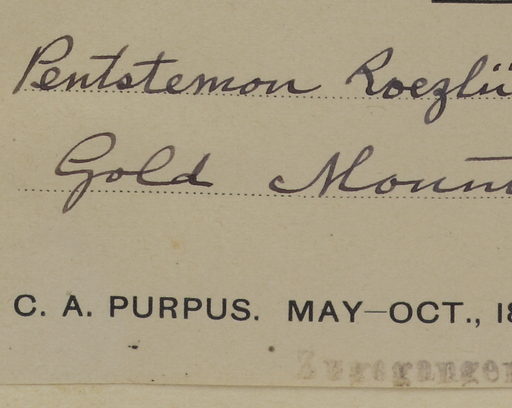 Pentstemon Roezlii
Gold Mount
C. A. PURPUS. MAY–OCT., 18
Zugegangen